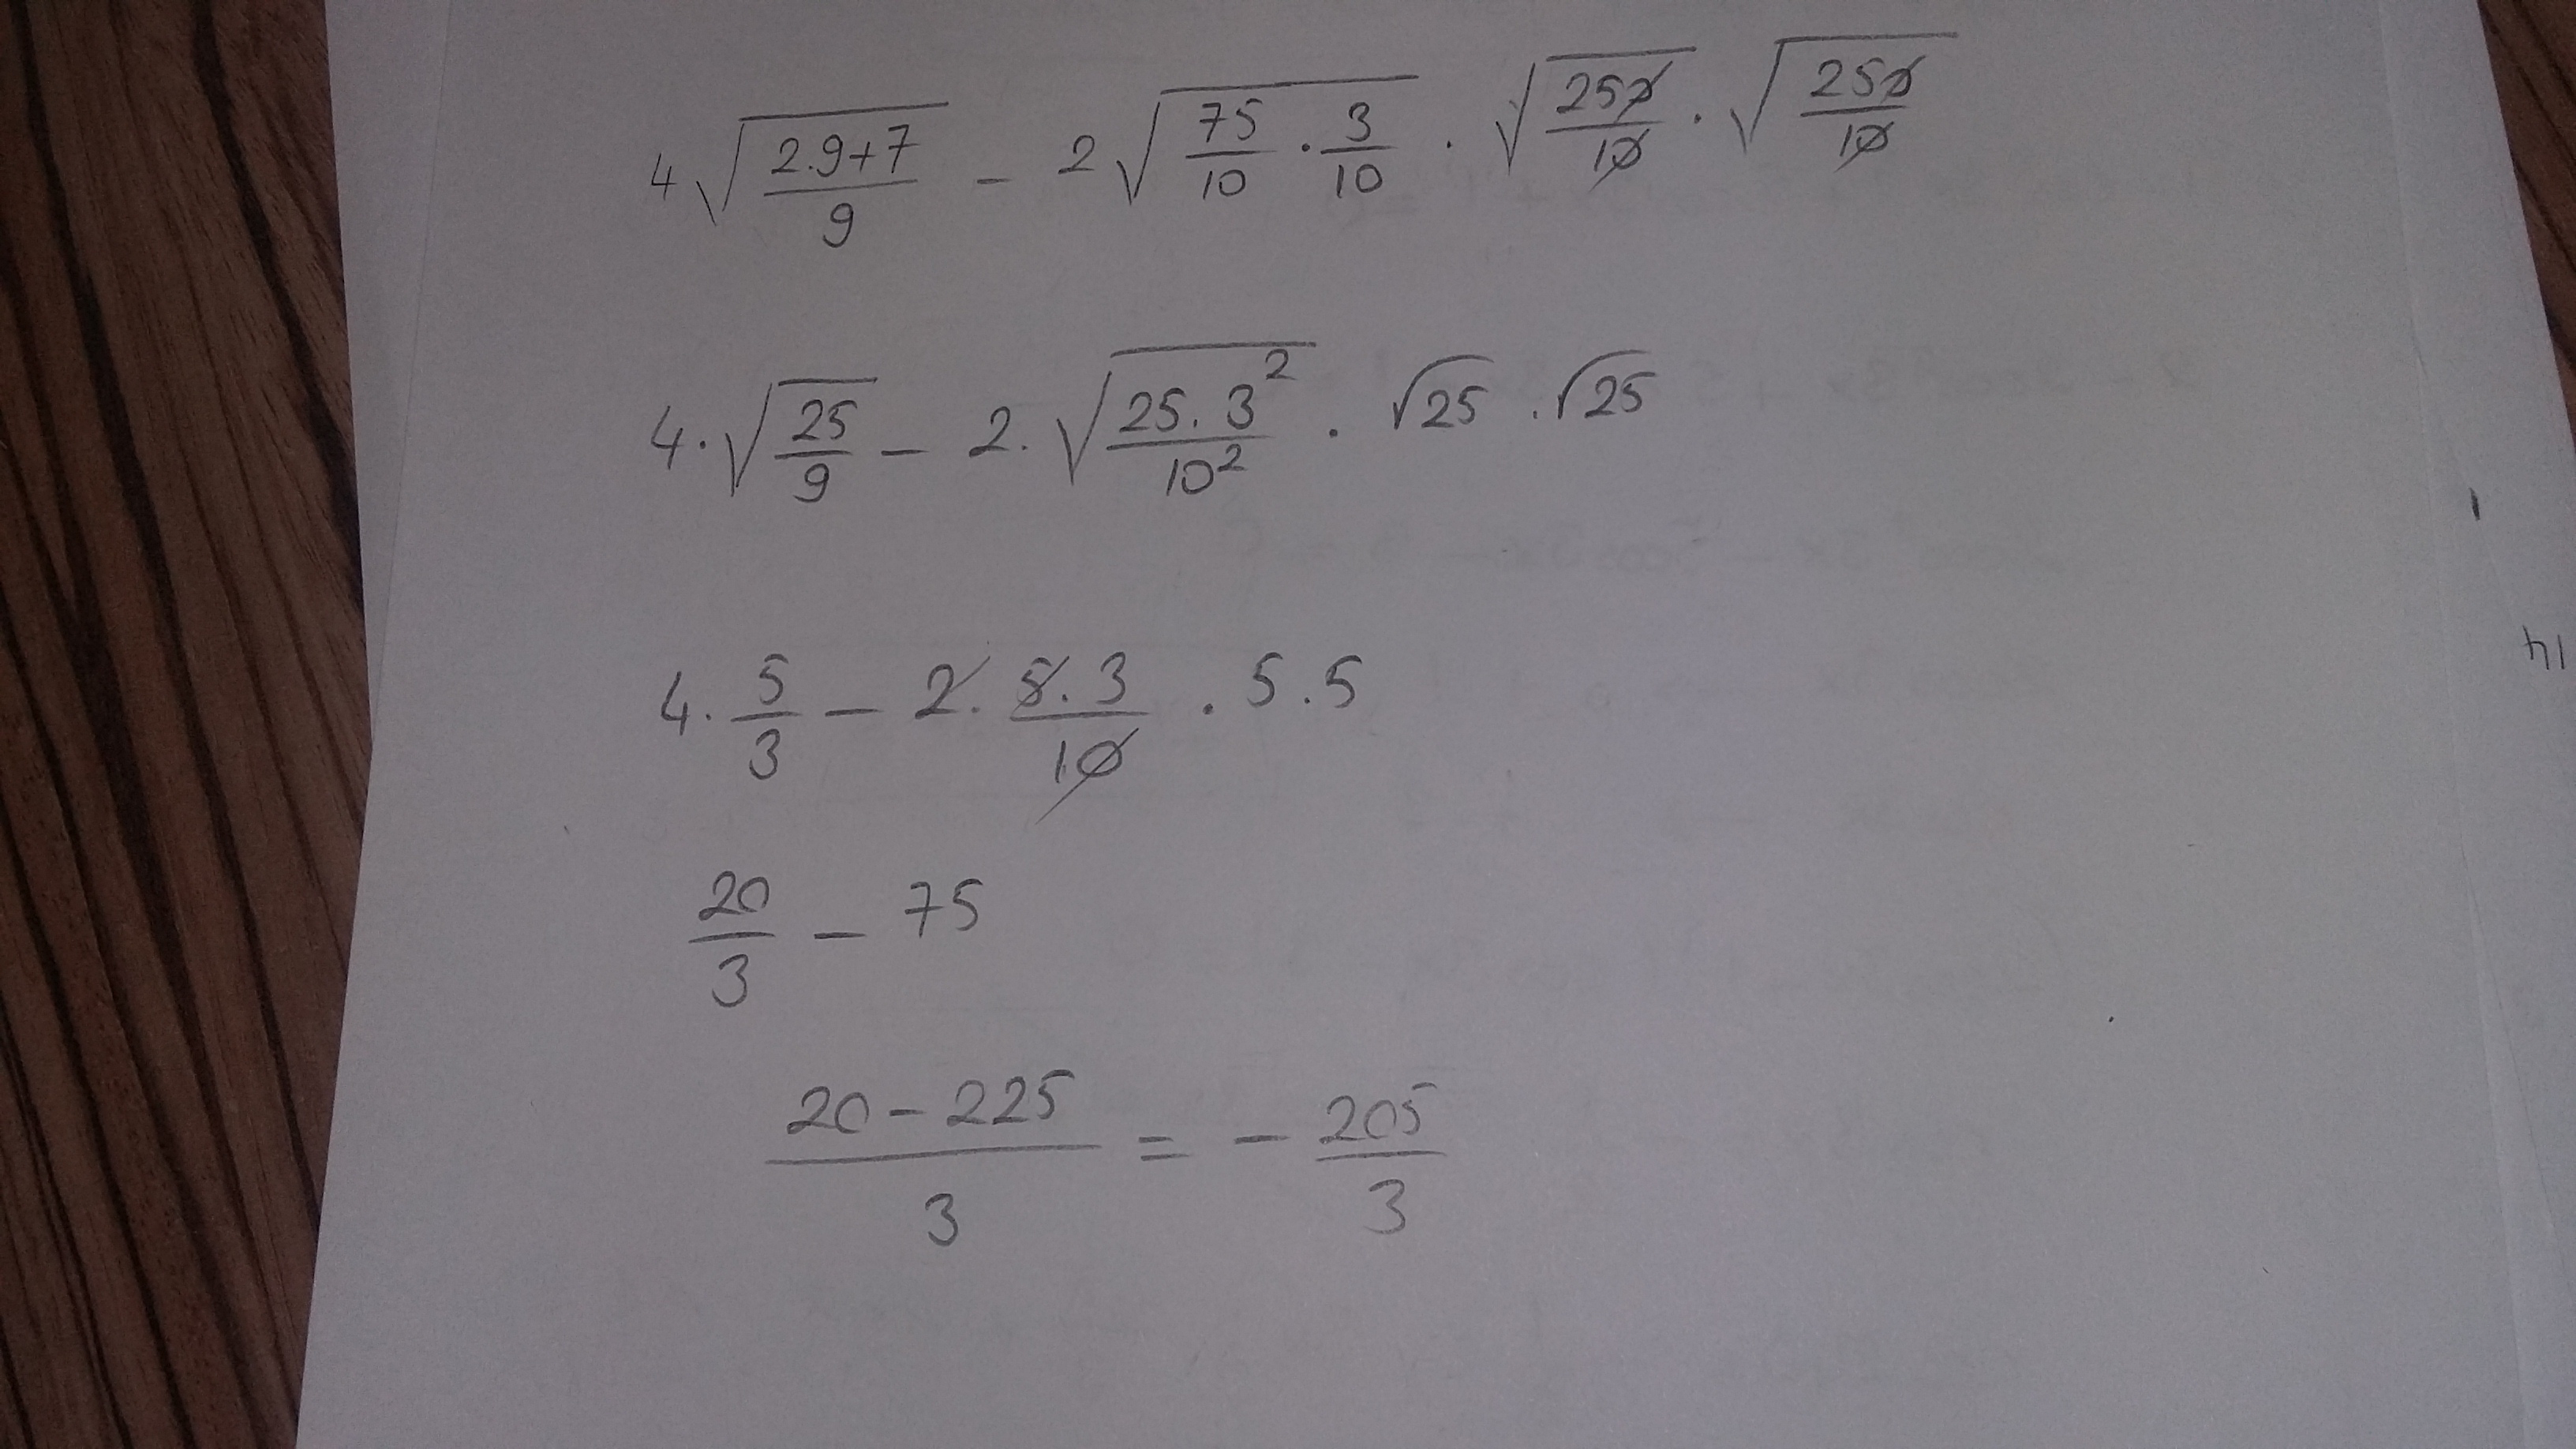 4√((2.9+7)/9) - 2√(75/10 · 3/10) · √(250/10) · √(250/10)
4·√(25/9) - 2·√((25.3²)/10²) · √25 · √25
4·5/3 - 2·(5.3)/10 · 5.5
20/3 - 75
(20-225)/3 = -205/3
14